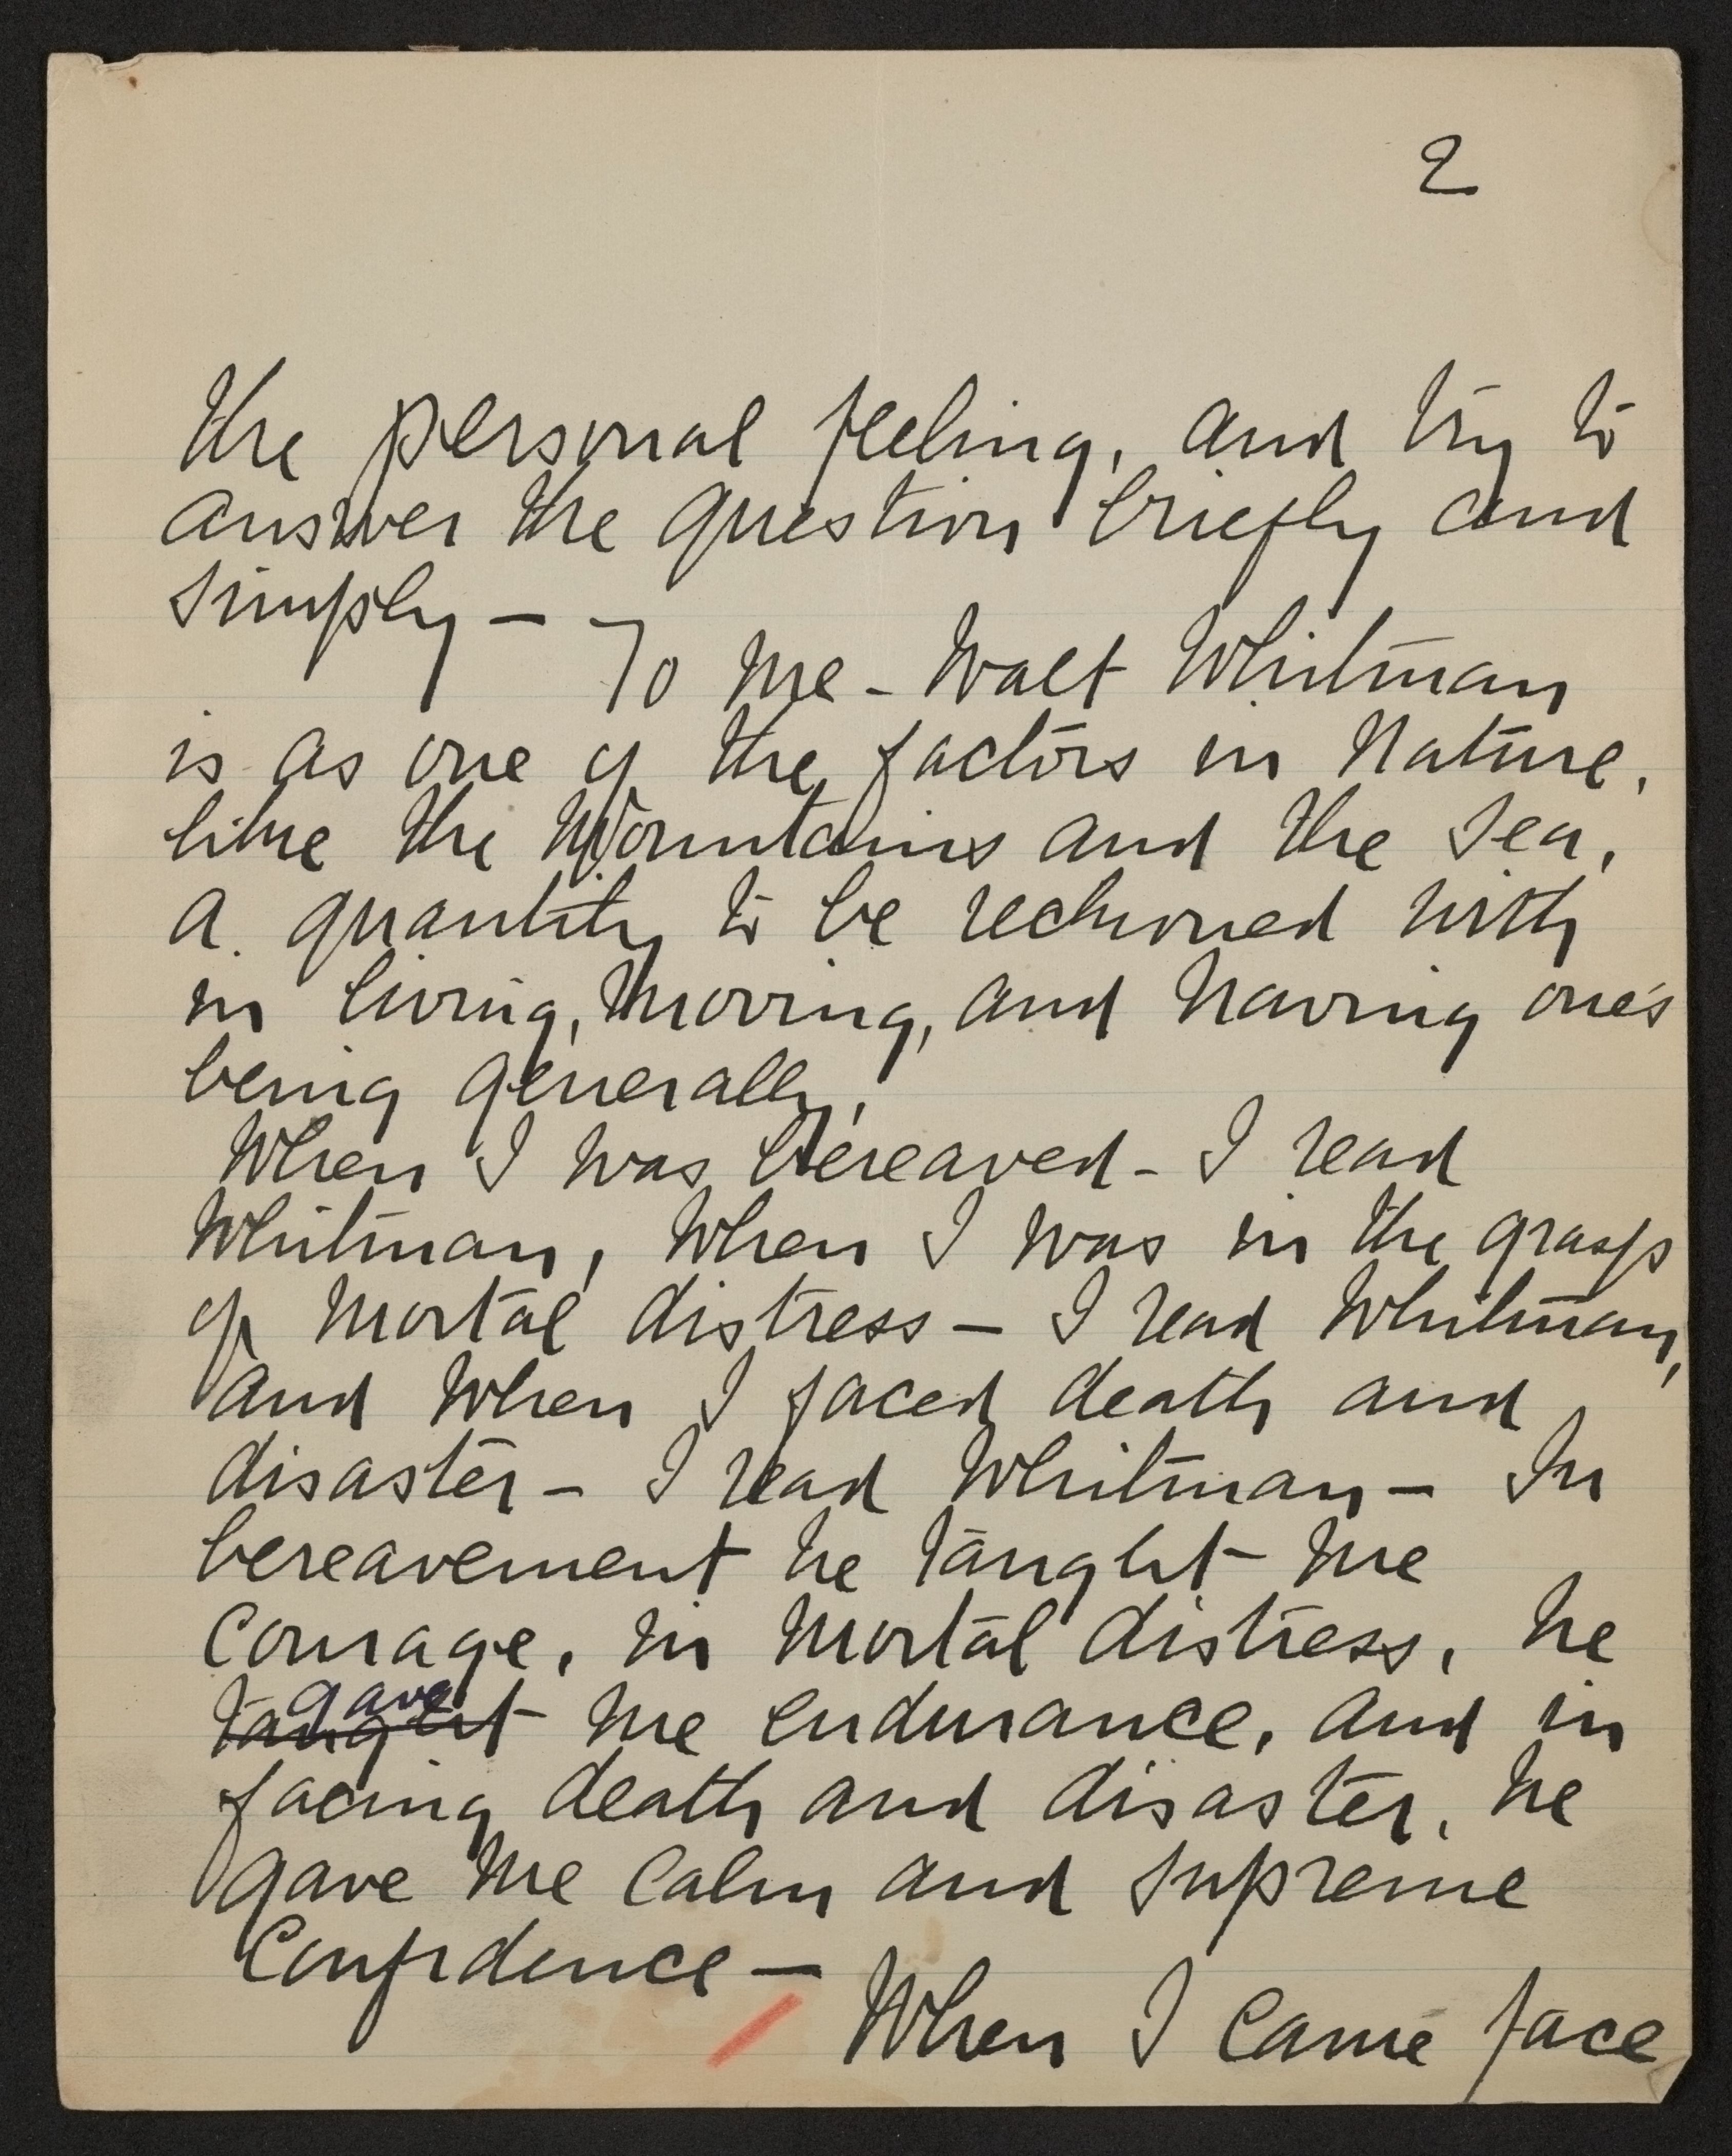 2
the personal feeling, and try to
answer the question briefly and
simply — To me - Walt Whitman
is as one of the factors in Nature,
like the Mountains and the Sea,
a quantity to be reckoned with
in living, moving, and having one's
being generally.
When I was bereaved - I read
Whitman, When I was in the grasp
of Mortal distress — I read Whitman,
and When I faced death and
disaster - I read Whitman — In
bereavement he taught me
Courage, in Mortal distress, he
gave
taught me endurance, and in
facing death and disaster, he
gave me Calm and Supreme
Confidence —
When I Came face